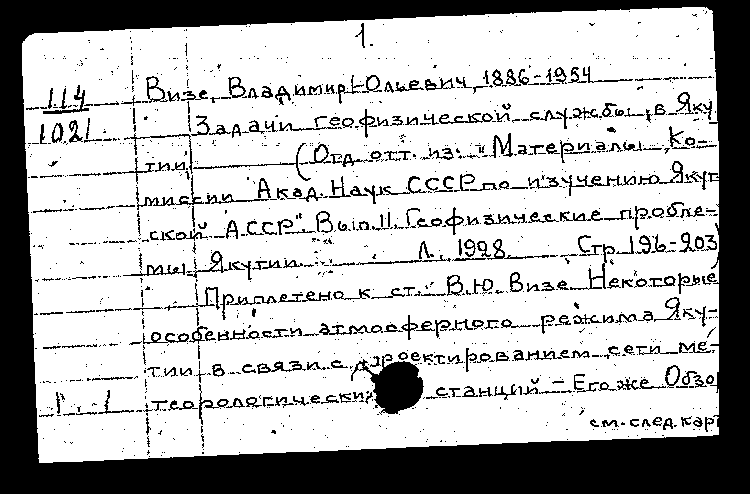 1.
114 Визе, Владимир Юльевич, 1886-1954
1021 Задачи геофизической службы в Яку
тии (Отд. отт. из: "Материалы Ко-
миссии Акад. Наук СССР по изучению Якут
ской АССР". Вып. 11. Геофизические пробле-
мы Якутии. Л. 1928. Стр. 196-203)
Приплетено к ст. В.Ю. Визе Некоторые
особенности атмосферного режима Яку-
тии в связи с проектированием сети ме-
теорологических станций - Его же Обзо
см. след. карт